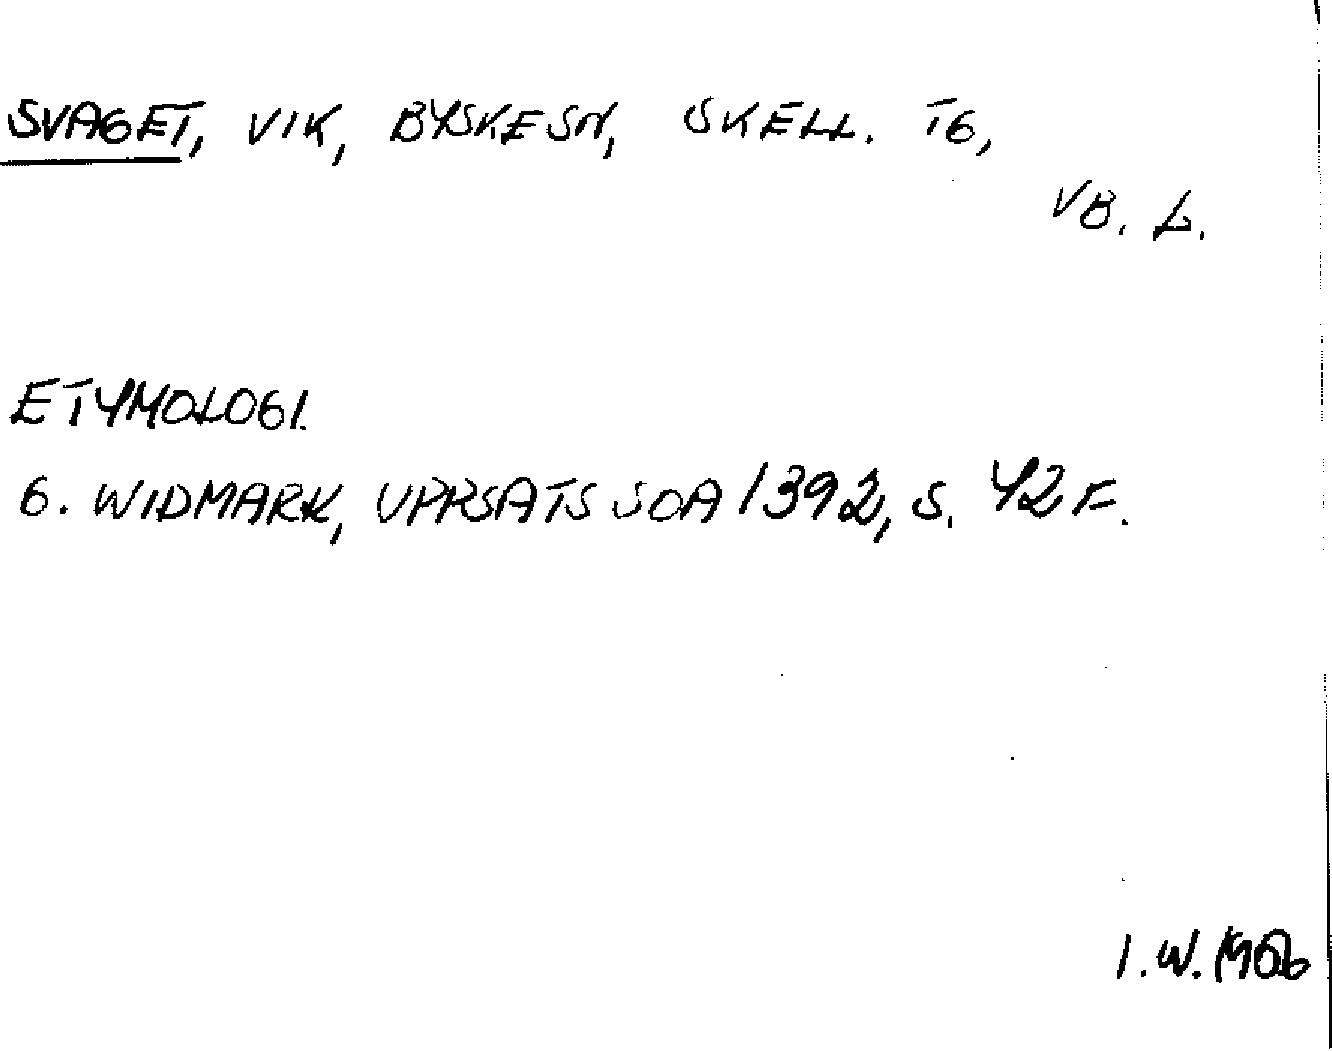 SVAGET, VIK, BYSKE SN, SKELL. TG,
VB. L.
ETYMOLOGI.
G. WIDMARK, UPPSATS SOA 1392, S. 42 F.
I. W.